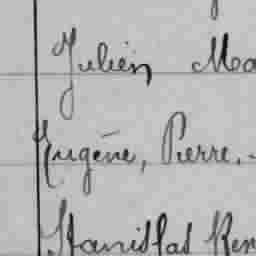 Julien
Eugène, Pierre,
Stanislas